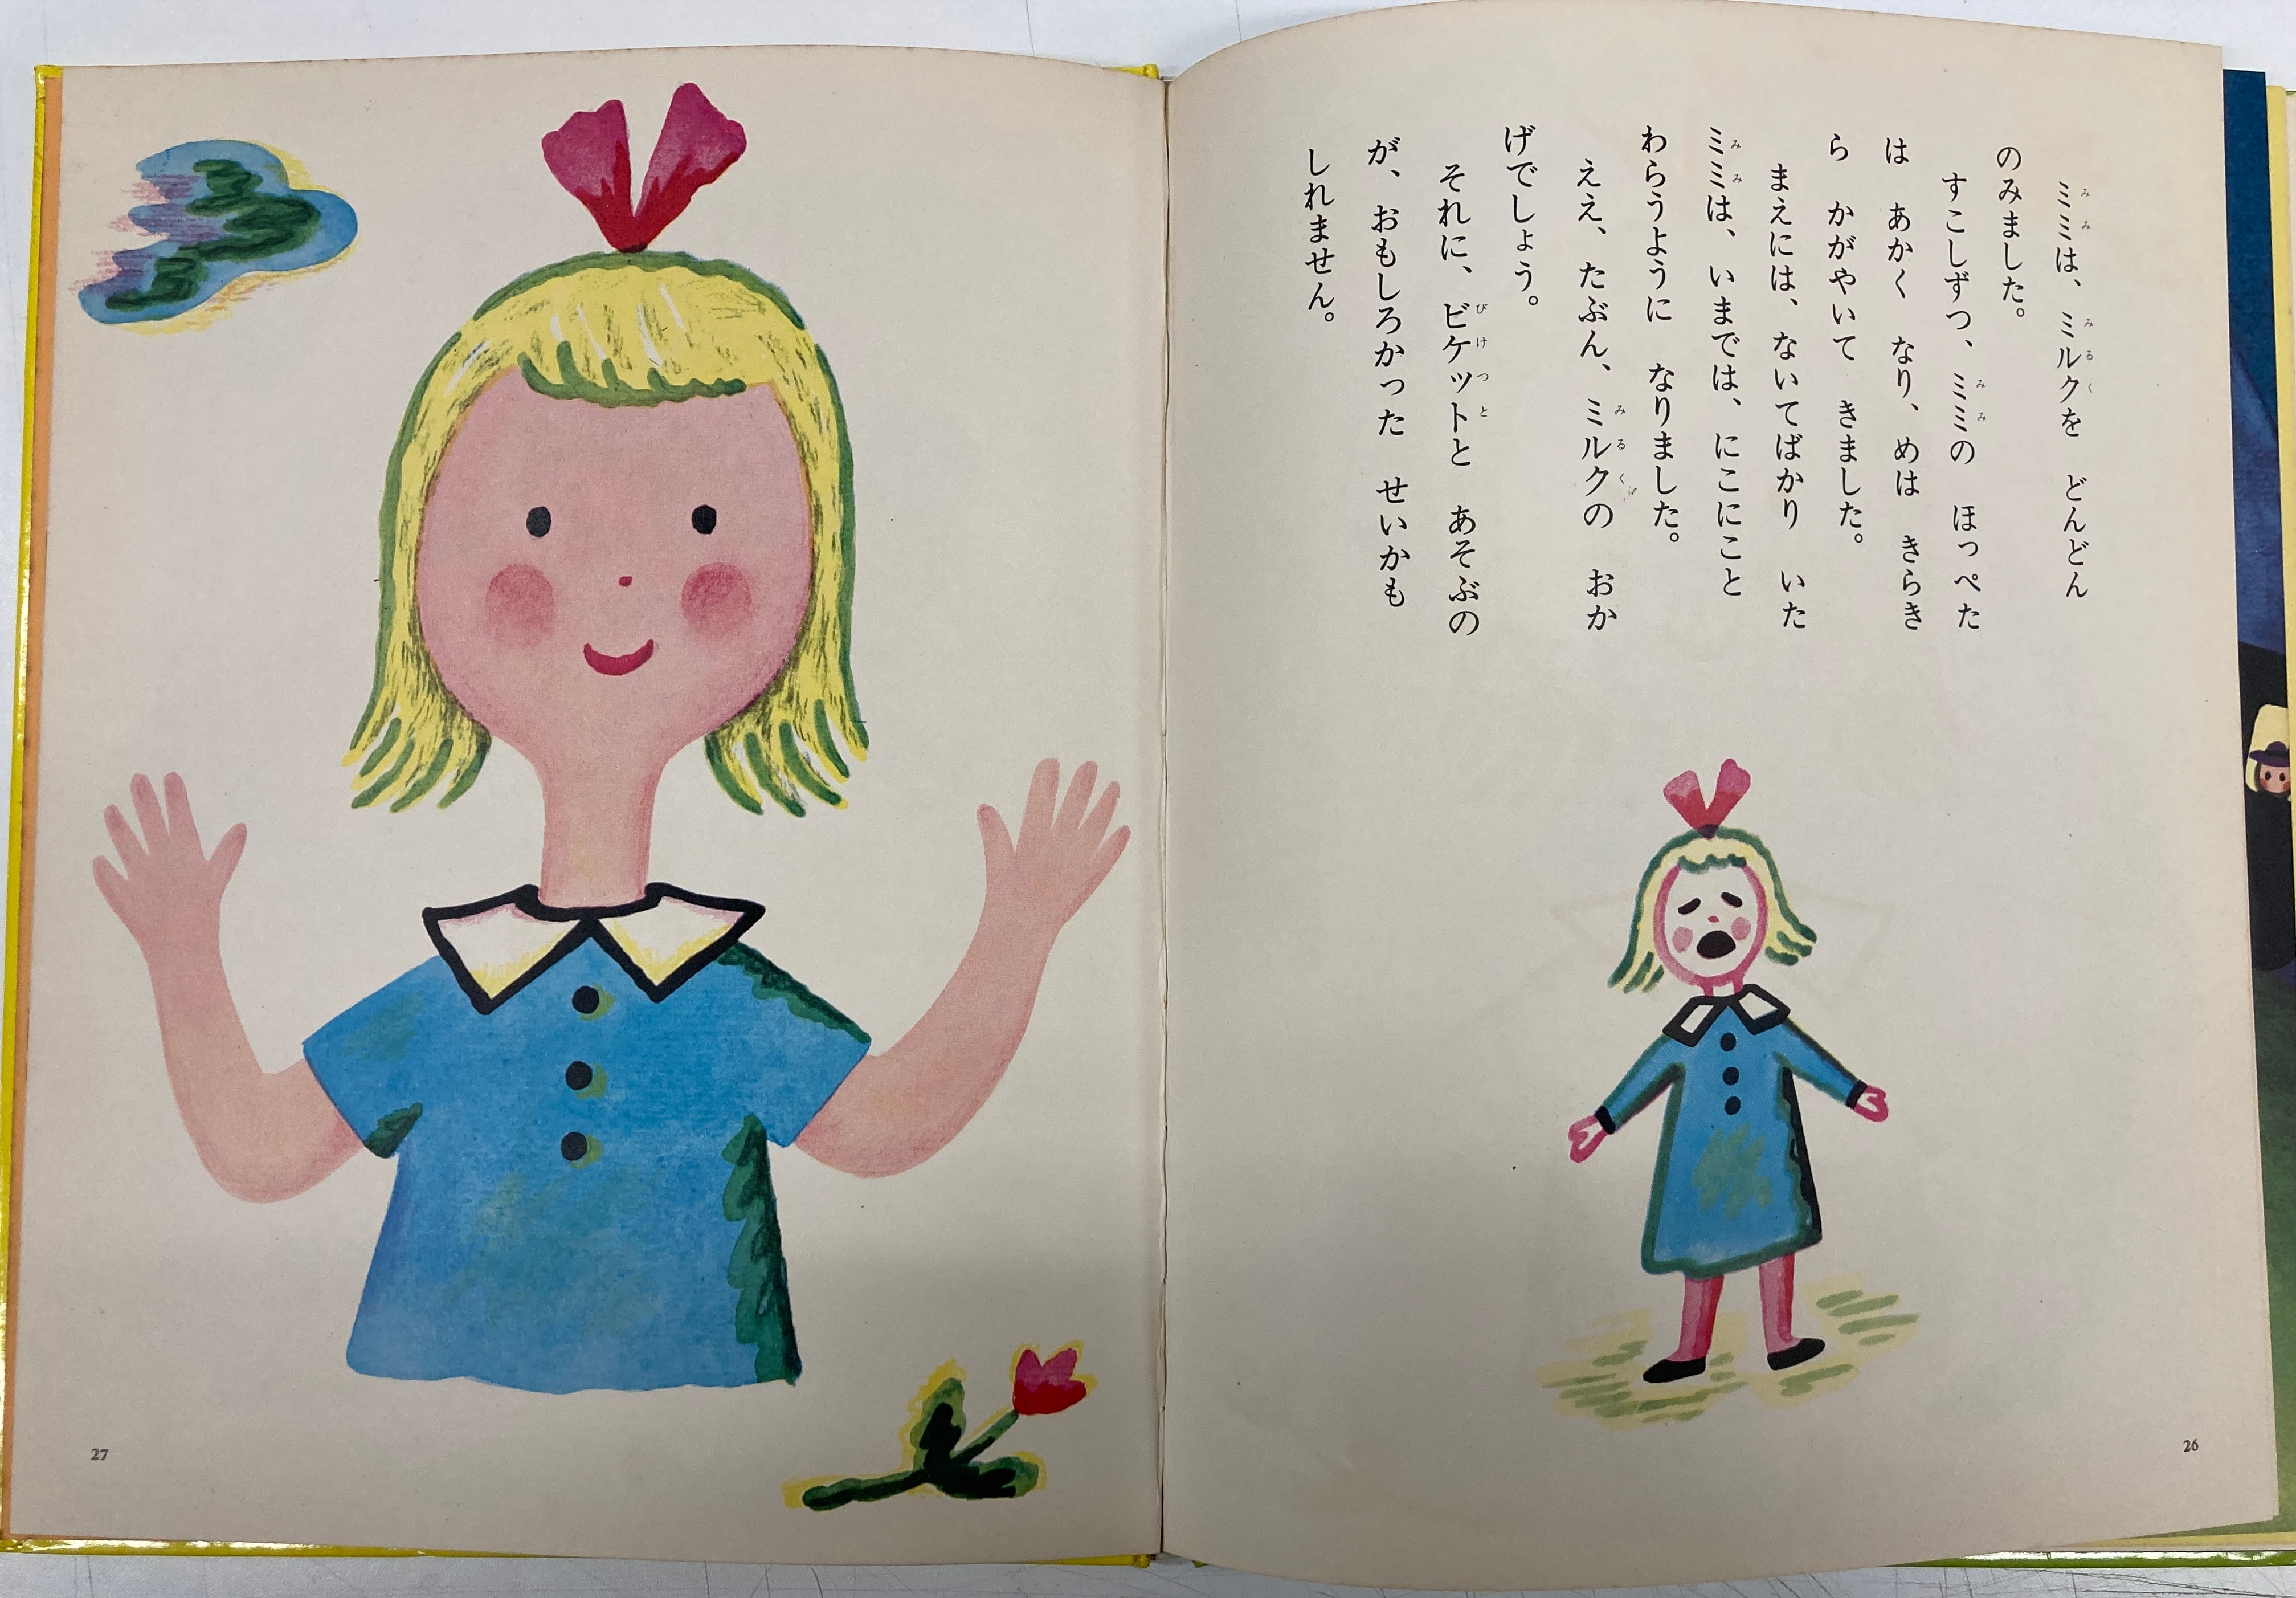 ミミは、ミルクを　どんどん
のみました。
すこしずつ、ミミの　ほっぺた
は　あかく　なり、めは　きらき
ら　かがやいて　きました。
まえには、ないてばかり　いた
ミミは、いまでは、にこにこと
わらうように　なりました。
ええ、たぶん、ミルクの　おか
げでしょう。
それに、ビケットと　あそぶの
が、おもしろかった　せいかも
しれません。
26
27